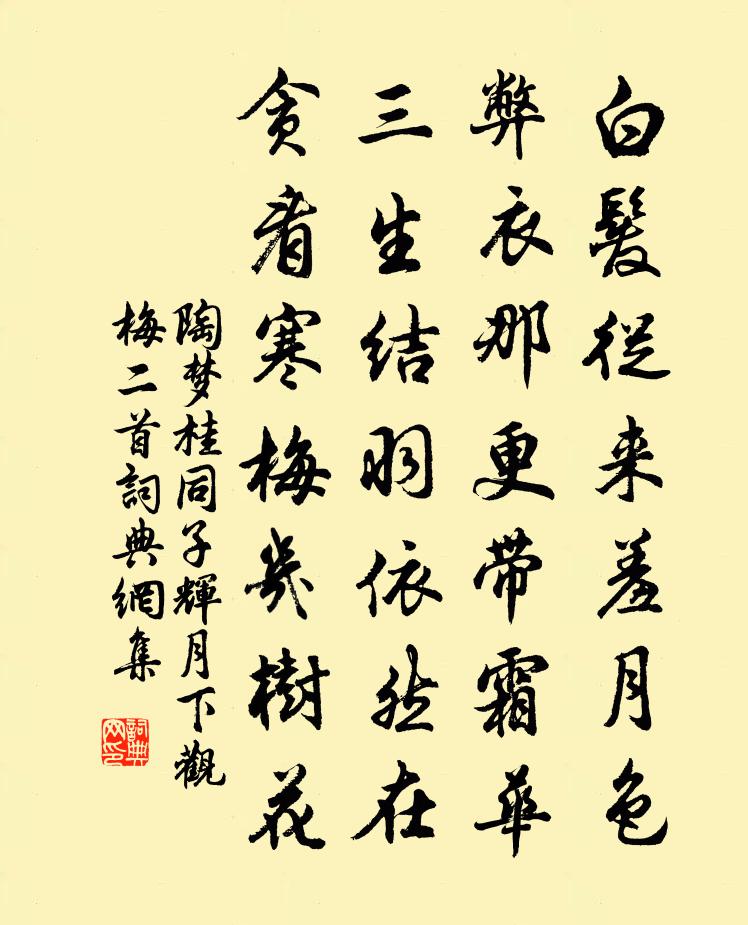 白髮從来羞月色
弊衣那更带霜華
三生结羽依然在
贪看寒梅幾樹花
陶梦桂同子輝月下觀
梅二首詞典網集
詞典
网印